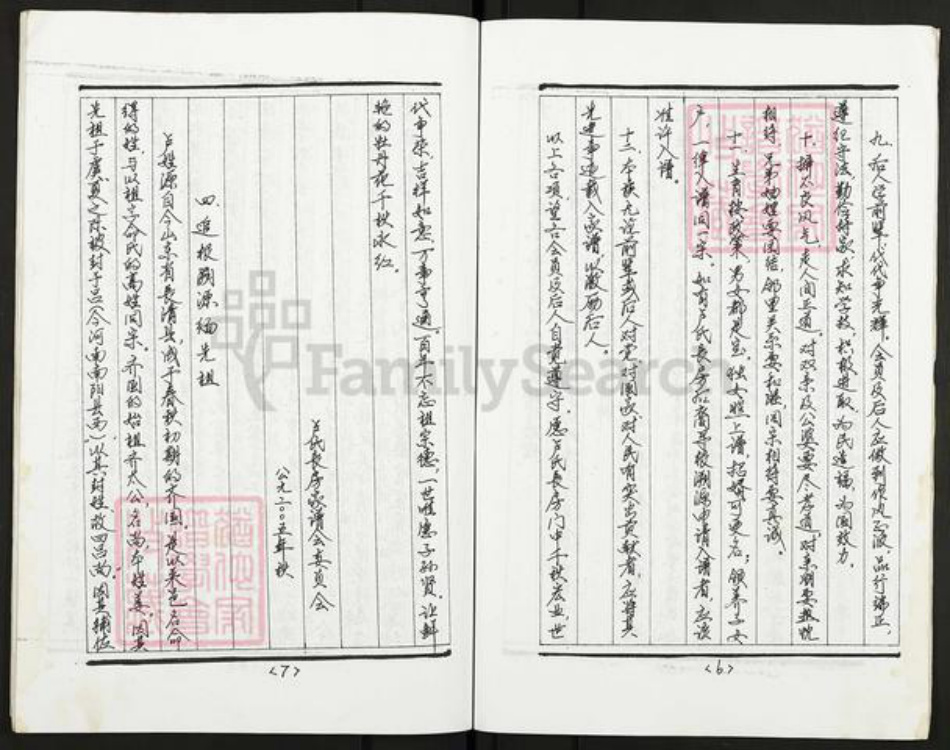 九、后人学前辈，代代争光辉。会员及后人应做到作风正派，品行端正，
遵纪守法，勤合作家，求知学技，积极进取，为民造福，为国效力。
十、摒不良风气，走人间正道。对双亲及公婆要尽孝道，对亲朋要热忱
相待，兄弟妯娌要团结，邻里关系要和睦，同宗相待要真诚。
十一、生育按政策，男女都是宝。独女照上谱，招婿可更名；领养子女
户，一律入谱同一宗。如有卢氏长房后裔寻根溯源申请入谱者，应该
准许入谱。
十二、本族凡没前辈或后人对党、对国家、对人民有突出贡献者，应将其
先进事迹载入家谱，以激励后人。
以上各项，望各会员及后人自觉遵守，愿卢氏长房门中千秋宏业，世
<6>
代争荣，吉祥如意，万事亨通。百年不忘祖宗德，一世唯愿子孙贤。让鲜
艳的牡丹花千秋永红。
卢氏长房家谱会委员会
公元二00五年秋
四 追根溯源缅先祖
卢姓源自今山东省长清县，成于春秋初期的齐国，是以采邑名命
得的姓，与以祖立命氏的高姓同宗。齐国的始祖齐太公，名尚，本姓姜，因其
先祖于虞夏之际被封于吕（今河南南阳县西），以其封姓故曰吕尚。因其辅佐
<7>
FamilySearch